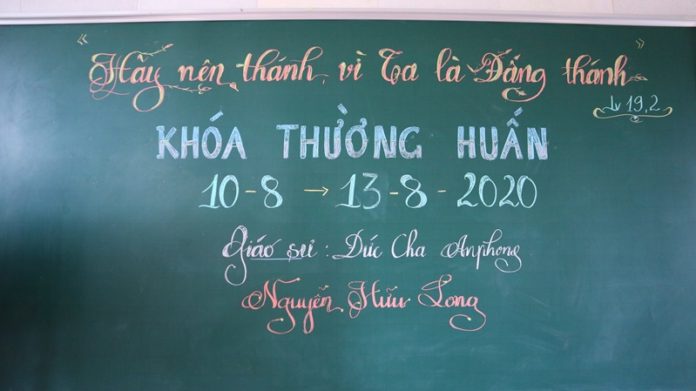 "Hãy nên thánh, vì Ta là Đấng thánh"
Lv 19,2
KHÓA THƯỜNG HUẤN
10-8 → 13-8-2020
Giáo sư: Đức Cha Anphong
Nguyễn Hữu Long